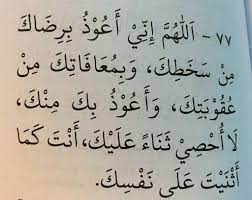 ٧٧ - اَللَّهُمَّ إِنِّيْ أَعُوْذُ بِرِضَاكَ
مِنْ سَخَطِكَ، وَبِمُعَافَاتِكَ مِنْ
عُقُوْبَتِكَ، وَأَعُوْذُ بِكَ مِنْكَ،
لَا أُحْصِيْ ثَنَاءً عَلَيْكَ، أَنْتَ كَمَا
أَثْنَيْتَ عَلَى نَفْسِكَ.